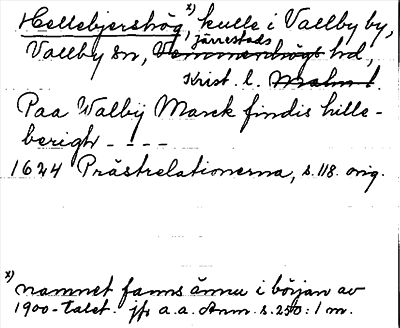 Hellebjershög, x) kulle i Vallby by,
Vallby sn, Vemmenhögs Järrestads hd,
Krist. l. Malm. l.
Paa Walbÿ Marck findis hille-
berigh - - - -
1624 Prästrelationerna, s. 118. orig.
x) namnet fanns ännu i början av
1900-talet. jfr a.a. Anm. s. 250: 1 m.